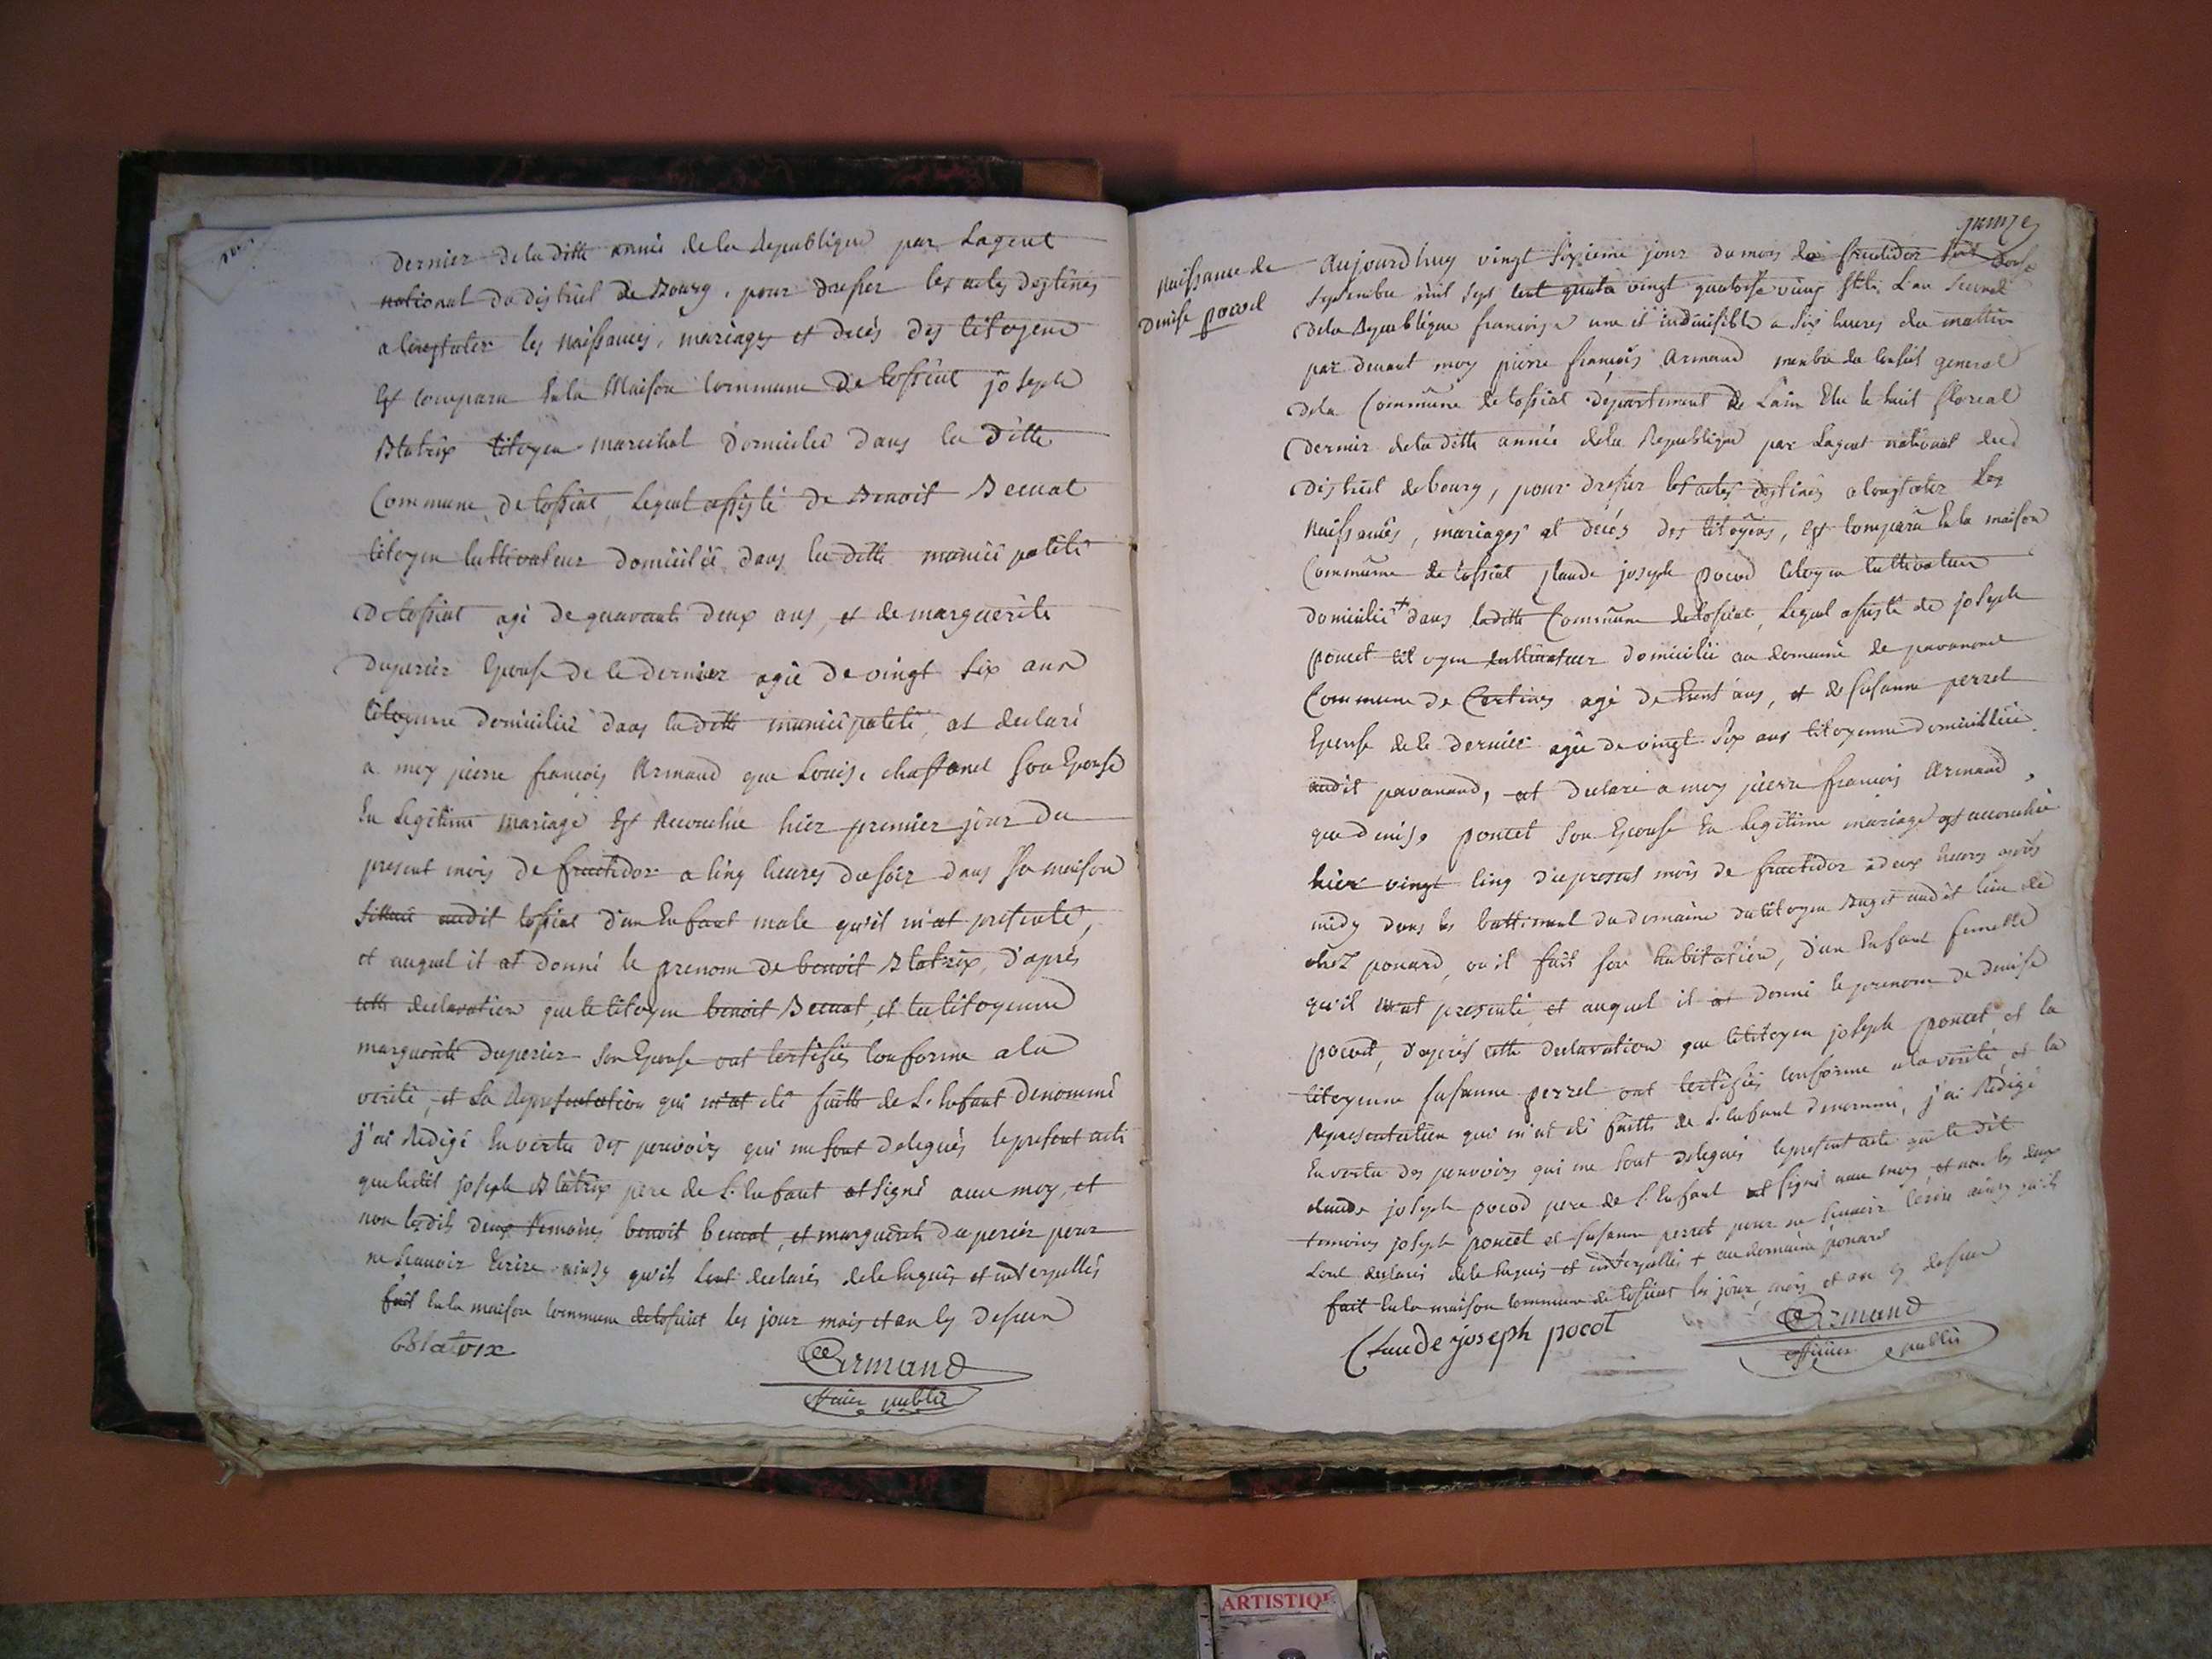 dernier de la ditte année de la Republique par Lagent
national du district de Bourg, pour dresser les actes destinés
a Constater les naissances, mariages et decés des Citoyens
Est comparu En la Maison Commune de tossiat joseph
Blatrix Citoyen marechal domicilié dans la ditte
Commune de tossiat, lequel assisté de Benoit Becuat
Citoyen Cultivateur domicilié dans la ditte municipalité
de tossiat agé de quarante deux ans, et de marguerite
duperier Epouse de ce dernier agée de vingt six ans
Citoyenne domiciliée dans la ditte municipalité, at declaré
a moy pierre françois Armand que Louise chassanel son Epouse
En Legitime mariage Est Accouchée hier premier jour du
present mois de fructidor a Cinq heures du soir dans sa maison
située audit tossiat d'un Enfant male qu'il m'at presenté,
et auquel il at donné le prenom de benoit Blatrix, d'aprés
cette declaration que le Citoyen benoit Becuat, et la Citoyenne
marguerite duperier son Epouse ont Certifiés Conforme a la
verité, et La Representation qui m'at été faitte de L'Enfant denommé
j'ai Redigé En vertu des pouvoirs qui me sont delegués le present acte
que ledit joseph Blatrix pere de L'Enfant at signé avec moy, et
non lesdits deux temoins benoit becuat, et marguerite duperier pour
ne sçauoir Ecrire ainsy qu'ils Lont declarés de ce Enquis et interpellés
fait En la maison Commune de tossiat les jour mois et an Cy dessus
Blatrix
Armand
officier public
naissance de
denise pocod
Aujourdhuy vingt sixieme jour du mois de fructidor
Septembre mil sept Cent quatre vingt quatorse L'an Second
de la Republique françoise une et indivisible a six heures du mattin
par devant moy pierre françois Armand membre du Conseil general
de la Commune de tossiat departement de Lain Elu le huit floreal
dernier de la ditte année de la Republique par Lagent national du
district de bourg, pour dresser les actes destinés a Constater Les
naissances, mariages et decés des Citoyens, Est Comparu En la maison
Commune de tossiat Claude joseph pocod Citoyen Cultivateur
domicilié + dans laditte Commune de tossiat, Lequel assisté de joseph
poncet Citoyen Cultivateur domicilié au domaine de pavanand
Commune de Certines agé de trent ans, et de susanne perret
Epouse de ce dernier agée de vingt six ans Citoyenne domiciliée
audit pavanand, at declaré a moy pierre françois Armand,
que denise poncet son Epouse En legitime mariage est accouchée
hier vingt Cinq du present mois de fructidor a deux heures aprés
midy dans les battiment du domaine du Citoyen audit lieu de
chez ponard, ou il fait son habitation, d'un Enfant femelle
qu'il m'at presenté et auquel il at donné le prenom de denise
pocod, d'aprés cette declaration que le Citoyen joseph poncet et la
Citoyenne susanne perret ont Certifiés Conforme a la verité et la
Representation qui m'at été faitte de L'Enfant denommé, j'ai Rédigé
En vertu des pouvoirs qui me sont delegués le present acte que le dit
claude joseph pocod pere de L'Enfant at signé avec moy et non les deux
temoins joseph poncet et susanne perret pour ne sçauoir Ecrire ainsy qu'ils
Lont declarés de ce Enquis et interpellés + au domaine ponard
fait En la maison Commune de tossiat les jour, mois et an Cy dessus
Claude joseph pocot
Armand
officier public
ARTISTIQUE